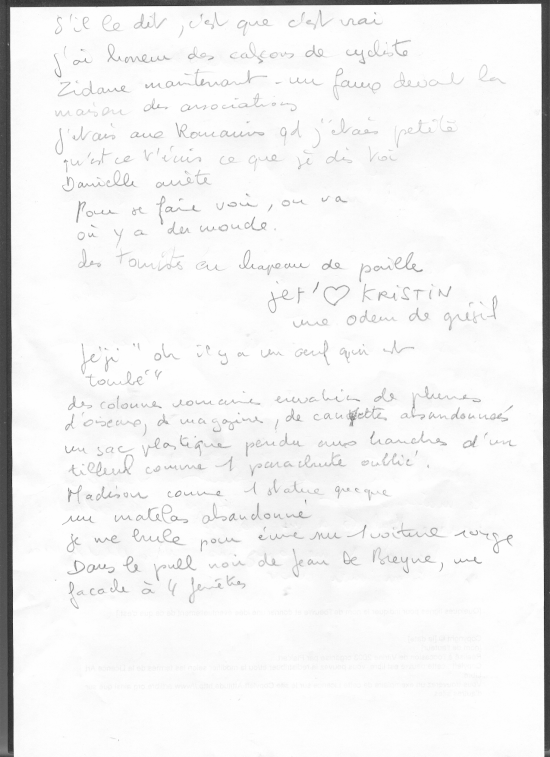 S'il le dit, c'est que c'est vrai
j'ai horreur des calçons de cycliste
Zidane maintenant - un faux devant la
maison des associations
J'étais aux Romarins qd j'étais petite
qu'est ce t'écris ce que je dis toi
Danielle arrête
Pour se faire voir, on va
où y a du monde.
des touristes au chapeau de paille
jet' ♡ KRISTIN
une odeur de grésil
Jéji " oh il y a un œuf qui est
tombé"
des colonnes romaines envahies de plumes
d'oiseaux, de magazine, de canettes abandonnées
un sac plastique pendu aux branches d'un
tilleul comme 1 parachute oublié.
Madison comme 1 statue grecque
un matelas abandonné
je me brûle pour écrire sur 1 voiture rouge
Dans le pull noir de Jean de Breyne, une
façade à 4 fenêtres